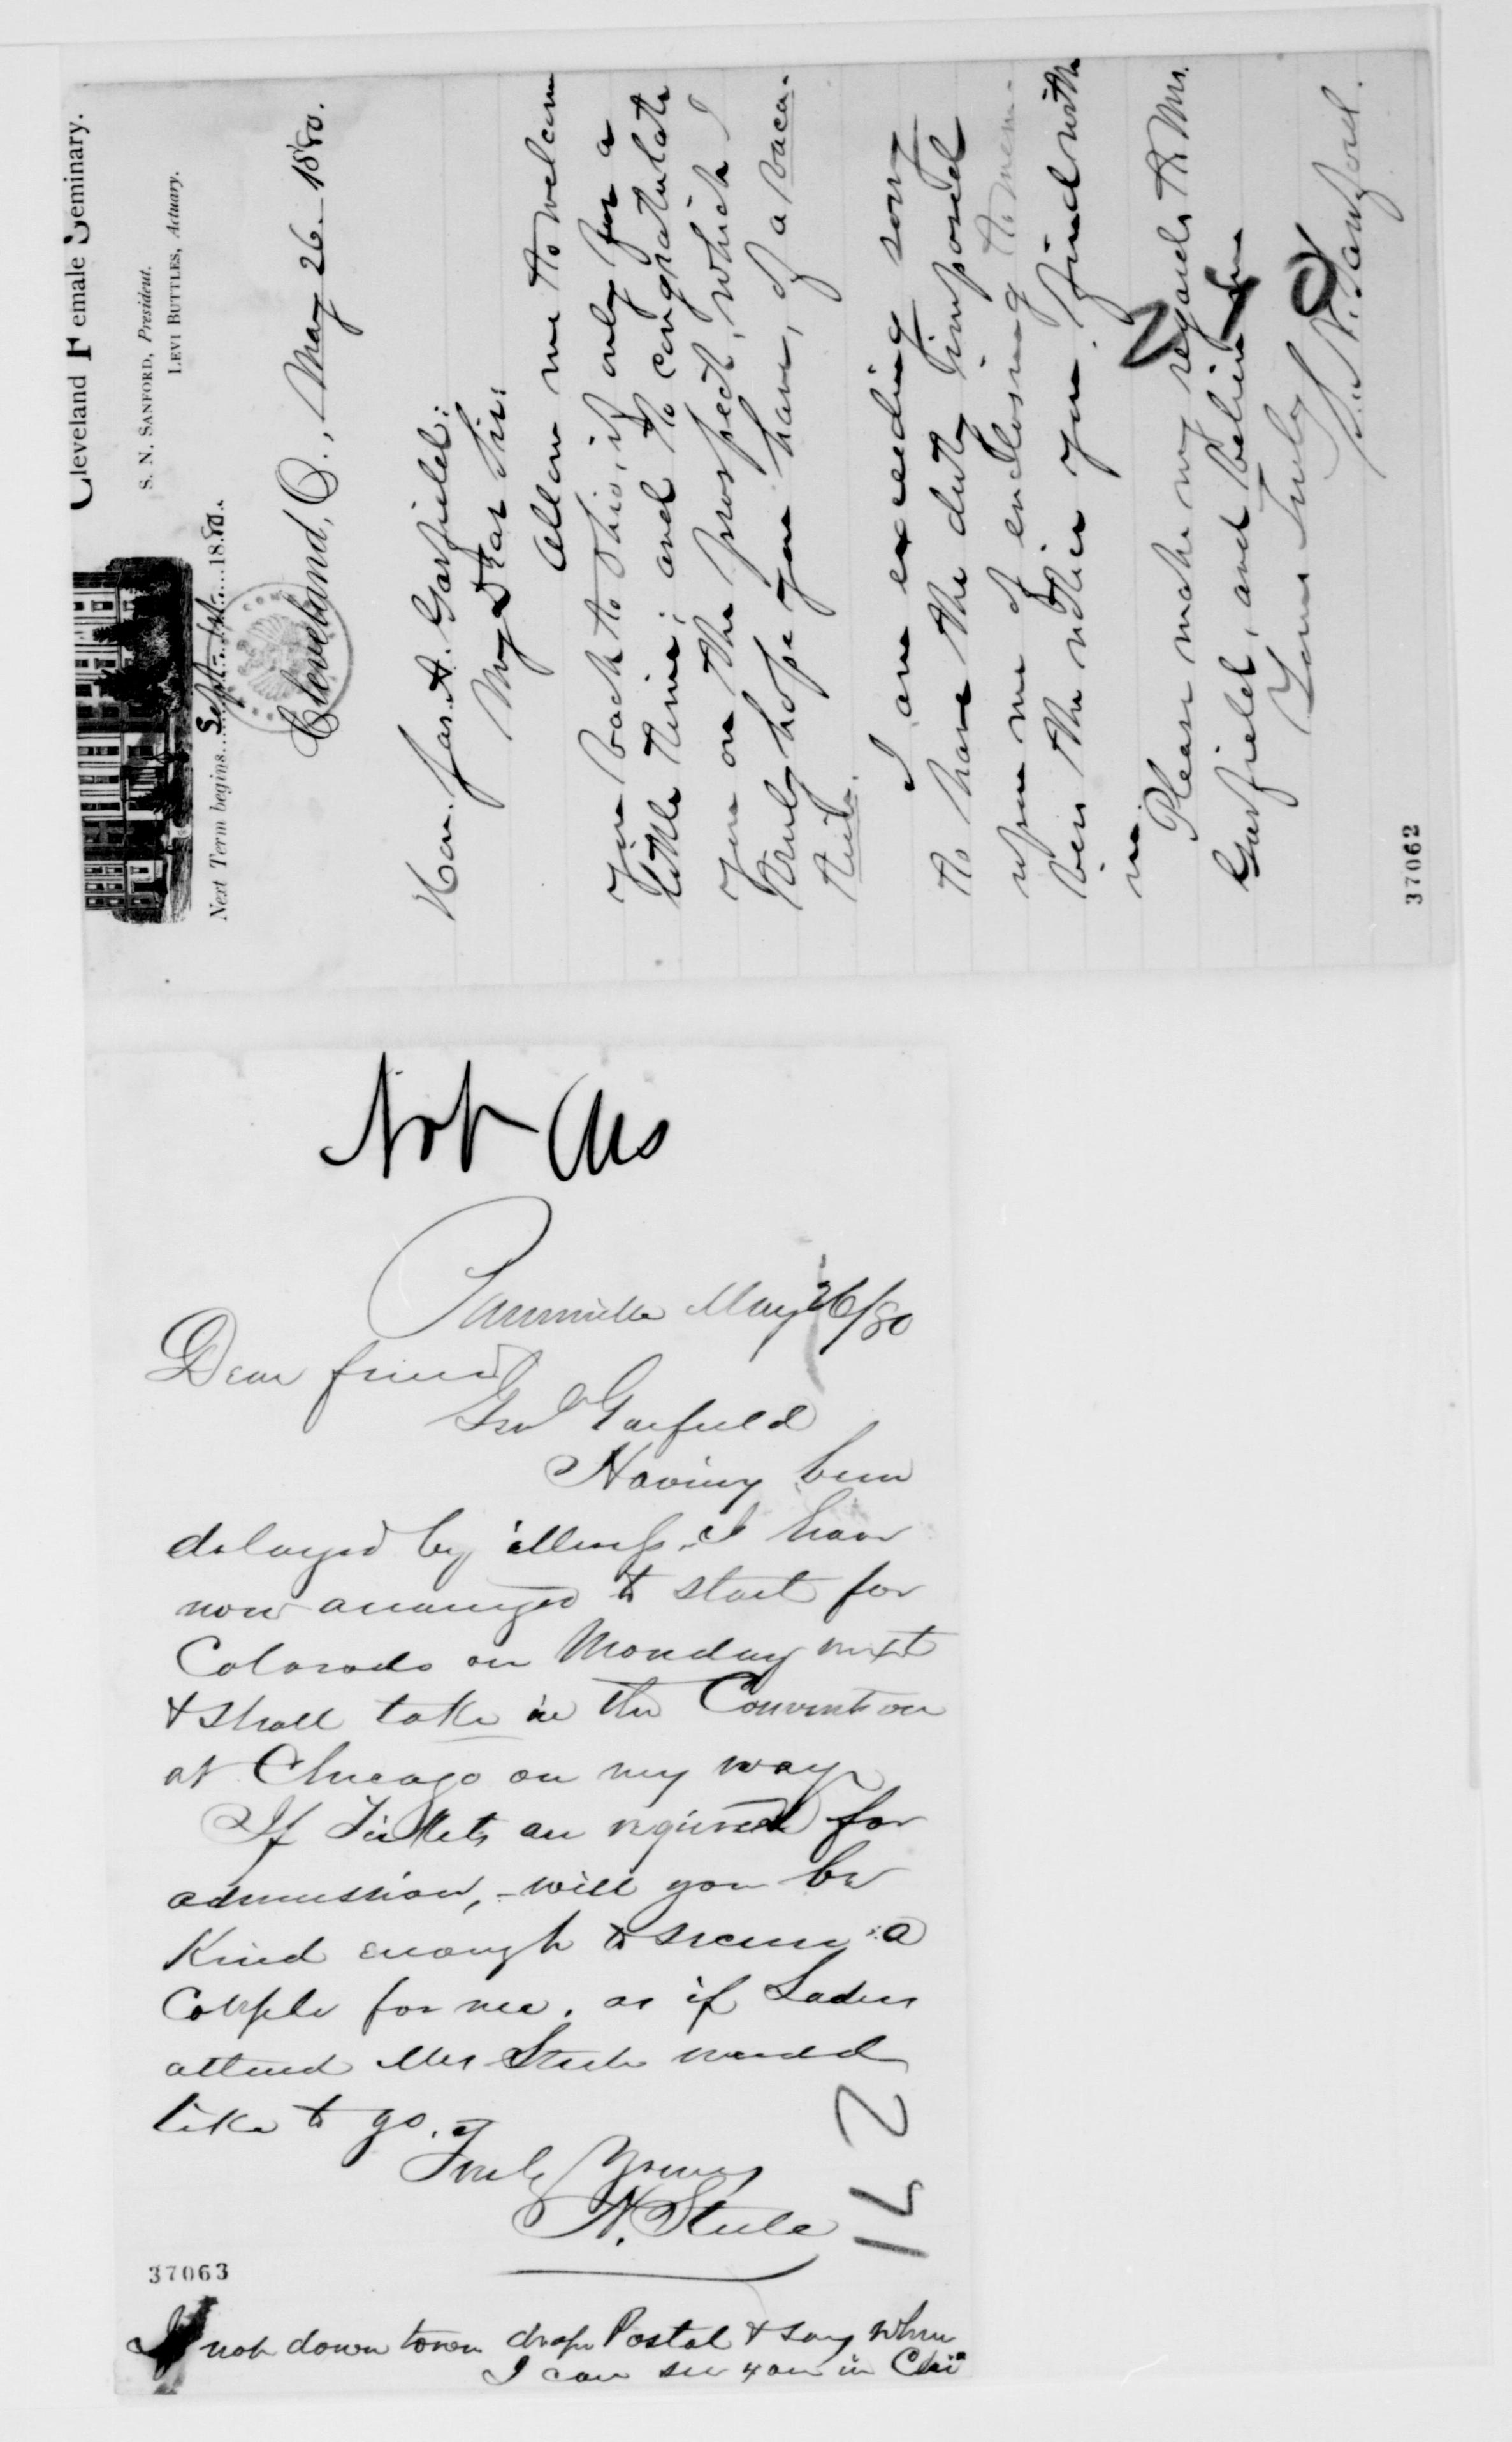 Cleveland Female Seminary.
S. N. SANFORD, President.
LEVI BUTTLES, Actuary.
Next Term begins Sept. 1st 1880.
Cleveland, O., May 26 1880.
Hon. Jas. A. Garfield:
My Dear Sir:
Allow me to welcom
you back to Ohio, if only for a
little time; and to congratulate
you on the prospect, which I
truly hope you have, of a vaca-
tion.
I am exceeding sorry
to have the duty imposed
upon me of enclosing to mem-
bers the notice you find with
in.
Please make my regards to Mrs.
Garfield, and believe me
Yours Truly
S. N. Sanford.
37062
Not Ans
Painesville May 26/80
Dear friend
Genl Garfield
Having been
delayed by illness, I have
now arranged to start for
Colorado on Monday next
& shall take in the Convention
at Chicago on my way
If Tickets are required for
admission, will you be
Kind enough to secure a
Couple for me. as if Ladies
attend Mrs Steele would
like to go.
Truly Yours
H. Steele
37063
If not down town drop Postal & say when
I can see you in Chi